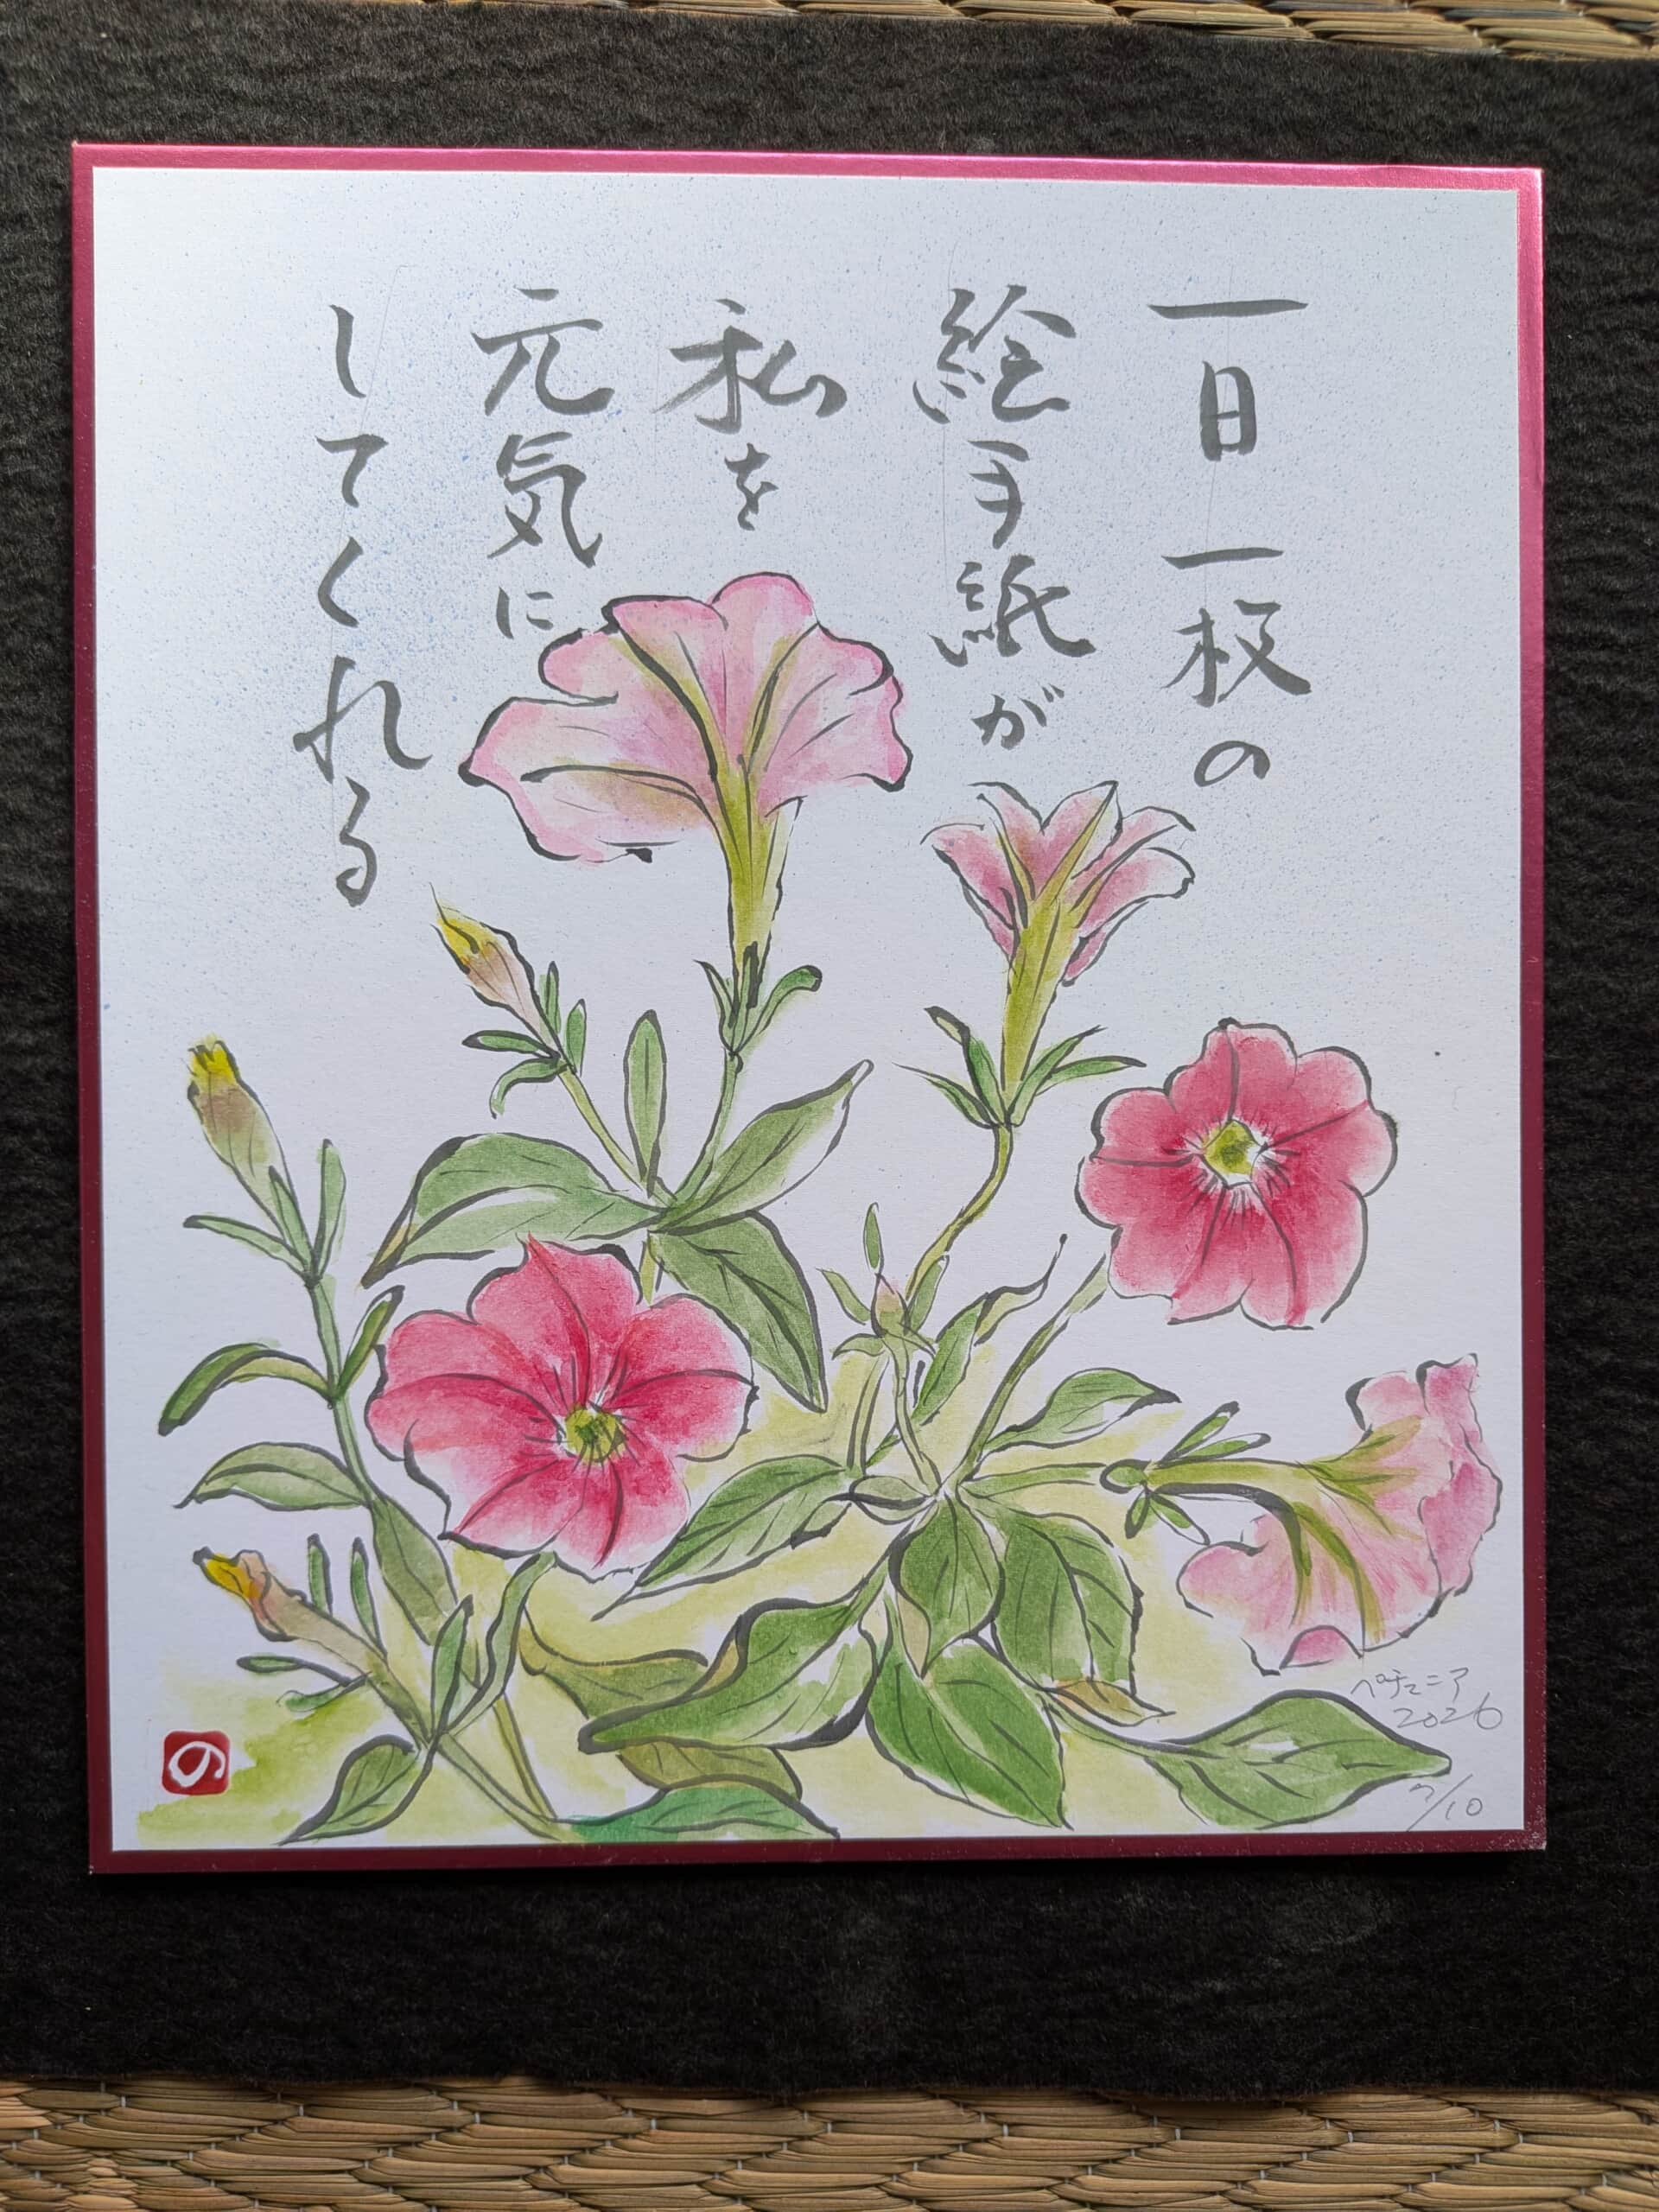 一日一枚の
絵手紙が
私を
元気に
してくれる
ペチュニア
2026
7/10
の